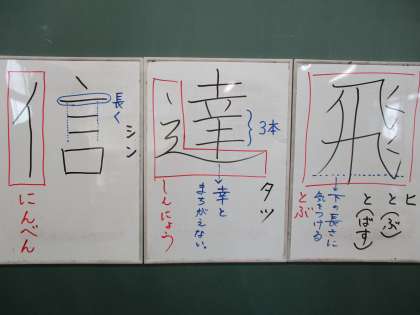 飛
ヒ
と(ぶ)
と(ばす)
下の長さに
気をつける
とぶ
達
3本
タツ
幸と
まちがえない。
しんにょう
信
長く
シン
にんべん